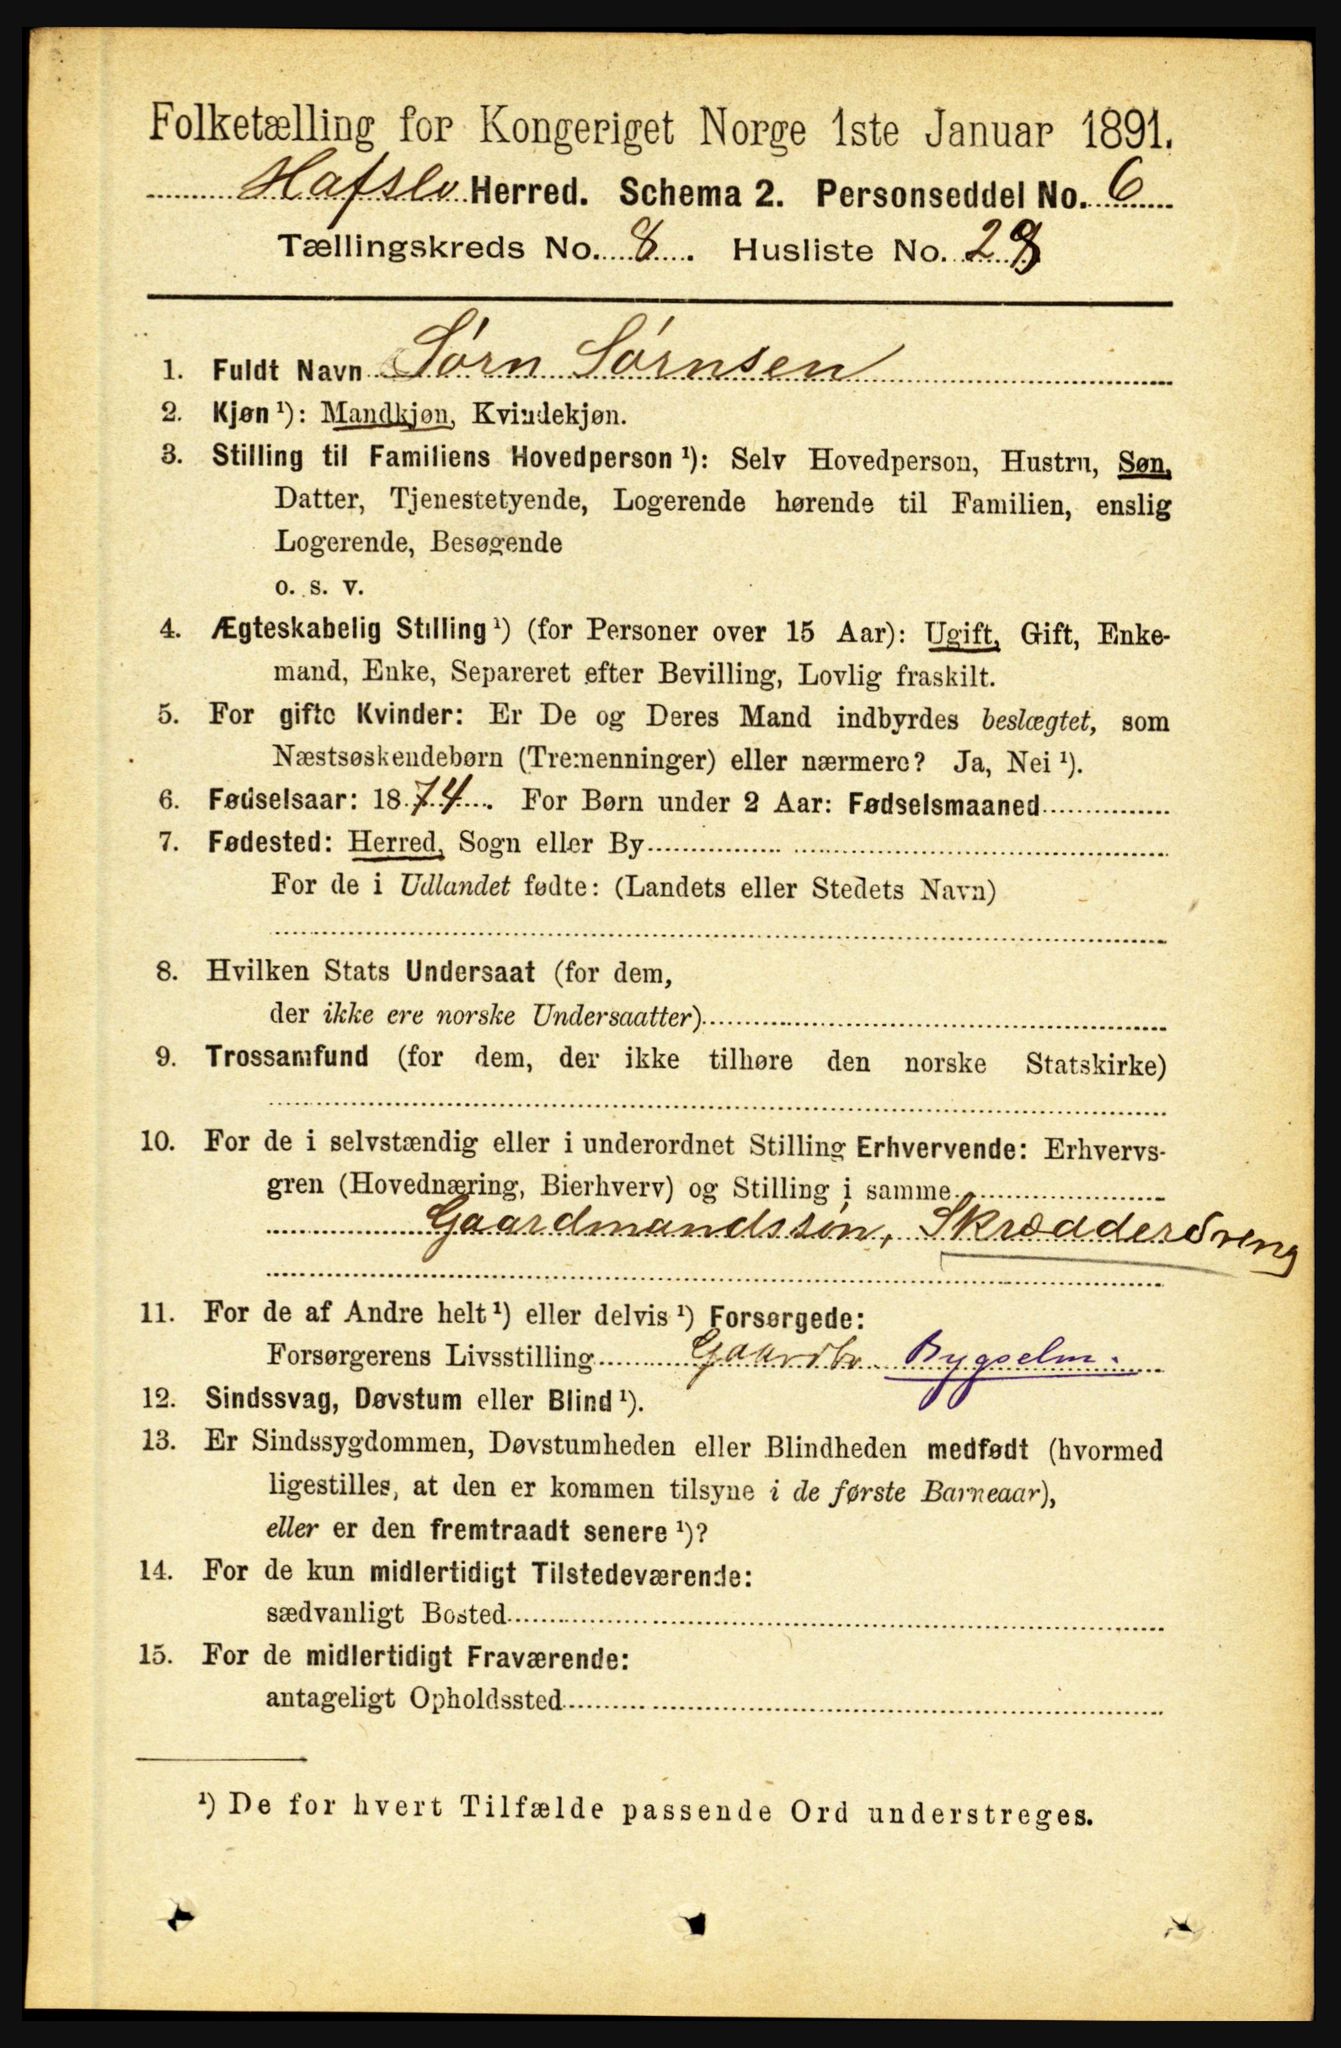 Folketælling for Kongeriget Norge 1ste Januar 1891.
Hafslo Herred. Schema 2. Personseddel No. 6
Tællingskreds No. 8. Husliste No. 28
1. Fuldt Navn Sørn Sørnsen
2. Kjøn ¹): Mandkjøn, Kvindekjøn.
3. Stilling til Familiens Hovedperson ¹): Selv Hovedperson, Hustru, Søn,
Datter, Tjenestetyende, Logerende hørende til Familien, enslig
Logerende, Besøgende
o. s. v.
4. Ægteskabelig Stilling ¹) (for Personer over 15 Aar): Ugift, Gift, Enke-
mand, Enke, Separeret efter Bevilling, Lovlig fraskilt.
5. For gifte Kvinder: Er De og Deres Mand indbyrdes beslægtet, som
Næstsøskendebørn (Tremenninger) eller nærmere? Ja, Nei ¹).
6. Fødselsaar: 1874. For Børn under 2 Aar: Fødselsmaaned
7. Fødested: Herred, Sogn eller By
For de i Udlandet fødte: (Landets eller Stedets Navn)
8. Hvilken Stats Undersaat (for dem,
der ikke ere norske Undersaatter)
9. Trossamfund (for dem, der ikke tilhøre den norske Statskirke)
10. For de i selvstændig eller i underordnet Stilling Erhvervende: Erhvervs-
gren (Hovednæring, Bierhverv) og Stilling i samme
Gaardmandssøn, Skrædderdreng
11. For de af Andre helt ¹) eller delvis ¹) Forsørgede:
Forsørgerens Livsstilling Gaardbr Bygselm.
12. Sindssvag, Døvstum eller Blind ¹).
13. Er Sindssygdommen, Døvstumheden eller Blindheden medfødt (hvormed
ligestilles, at den er kommen tilsyne i de første Barneaar),
eller er den fremtraadt senere ¹)?
14. For de kun midlertidigt Tilstedeværende:
sædvanligt Bosted
15. For de midlertidigt Fraværende:
antageligt Opholdssted
¹) De for hvert Tilfælde passende Ord understreges.